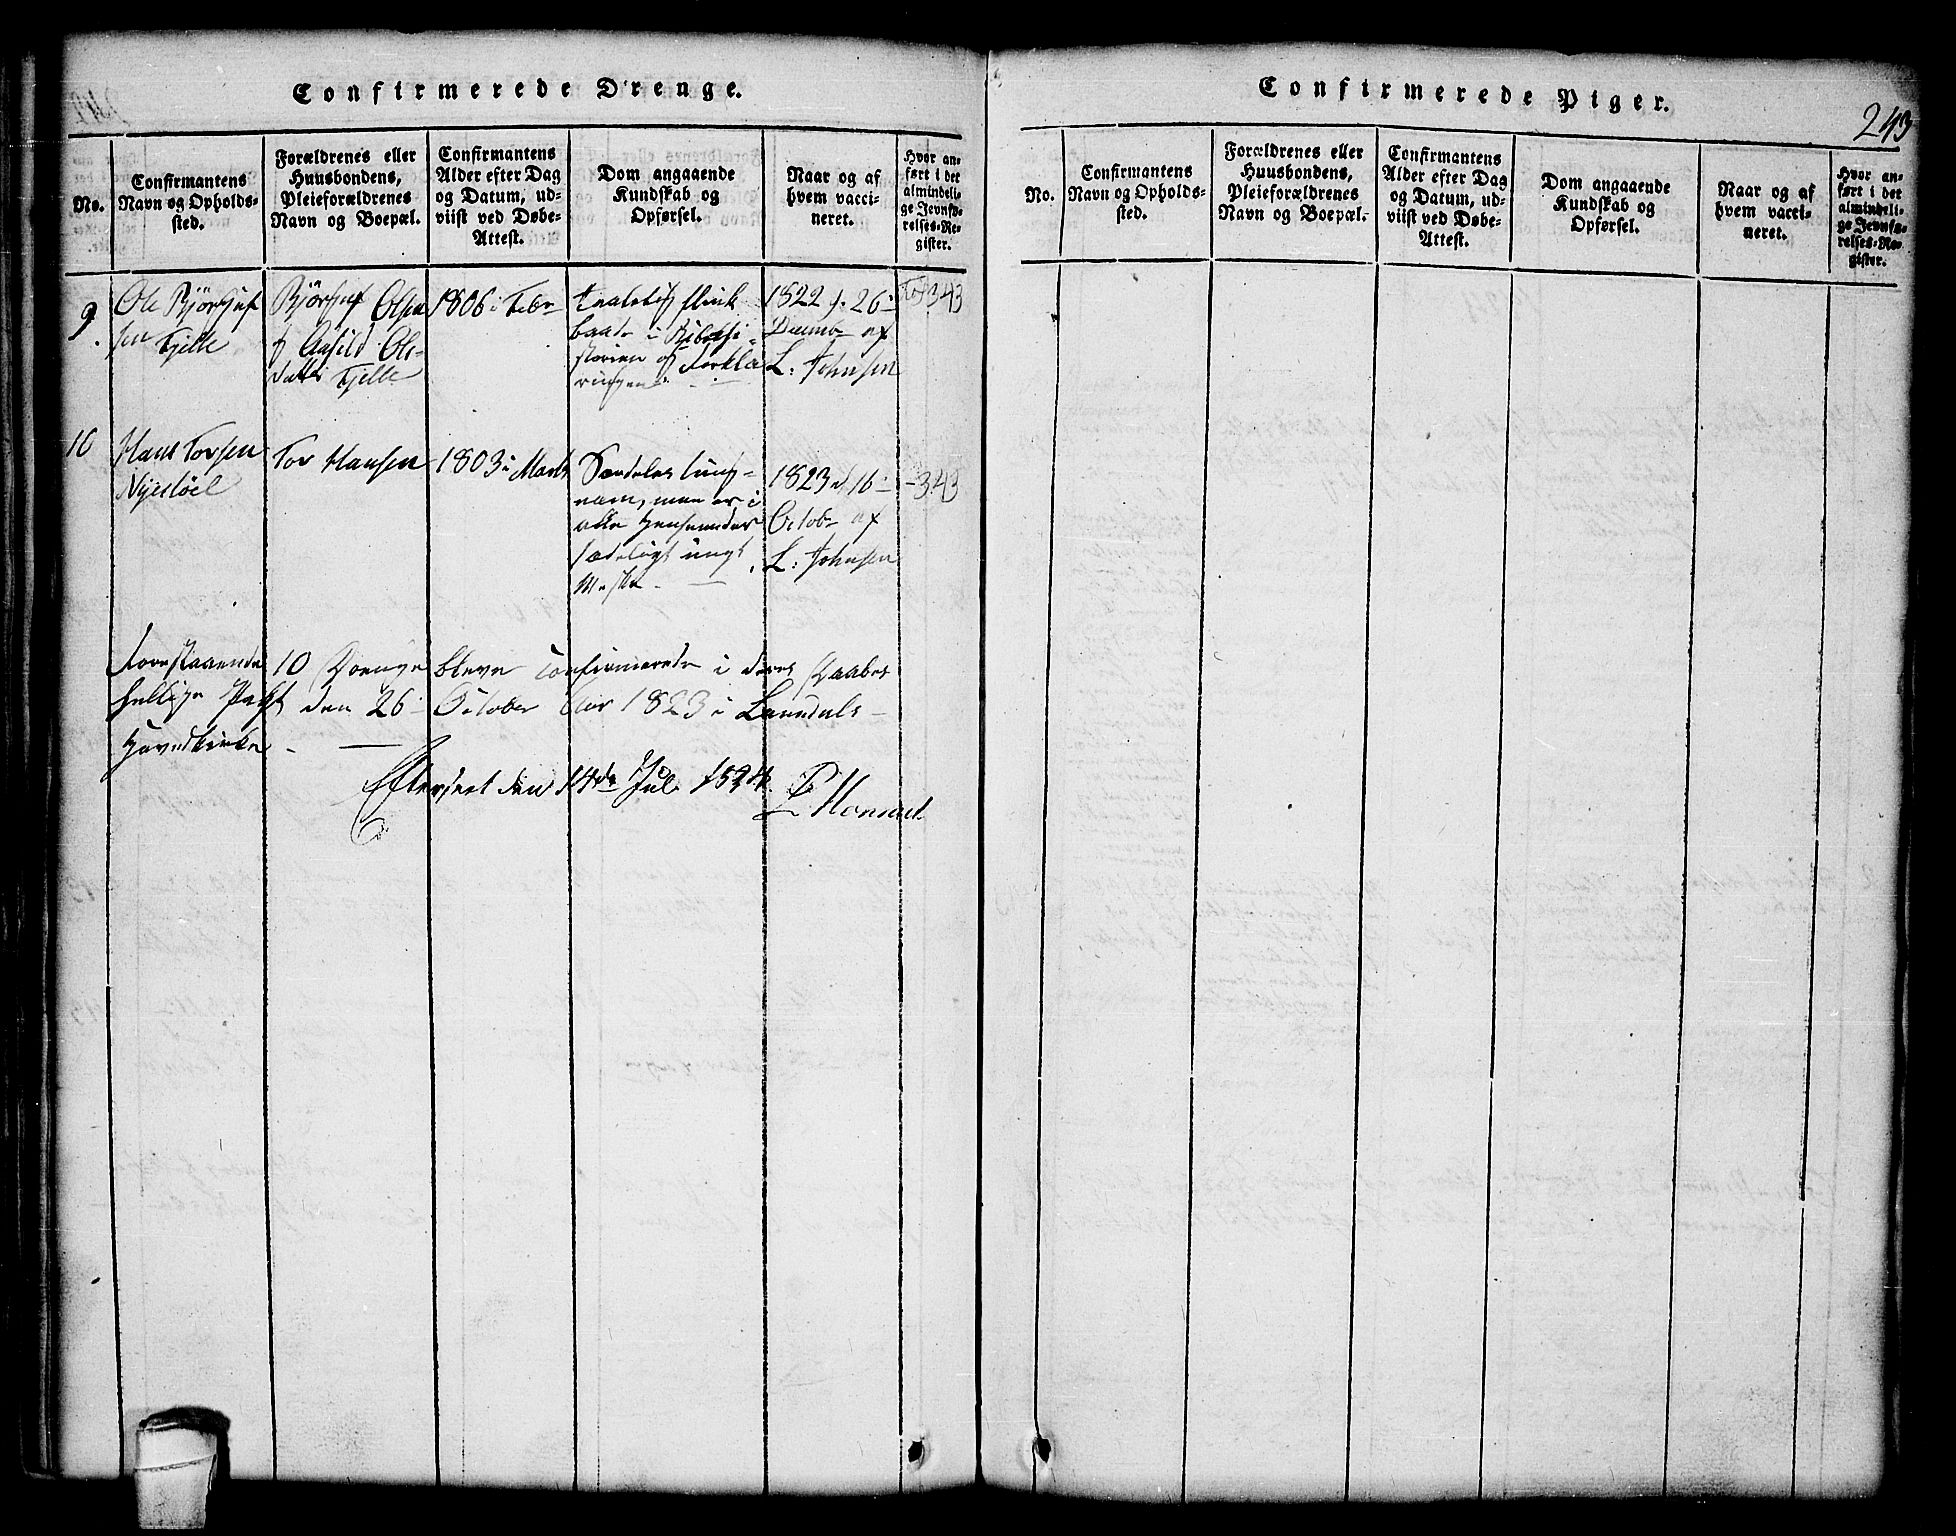 Confirmerede Drenge.
No.
Confirmantens
Navn og Opholds-
sted.
Forældrenes eller
Huusbondens,
Pleieforældrenes
Navn og Boepæl.
Confirmantens
Alder efter Dag
og Datum, ud-
viist ved Døbe-
Attest.
Dom angaaende
Kundskab og
Opførsel.
Naar og af
hvem vacci-
neret.
Hvor an-
ført i det
almindeli-
ge Jevnfø-
relses-Re-
gister.
9.
Ole Björguf
sen Fjelle
Björguf Olsen
og Aasild Ole-
datter Fjelle
1806 i Febr
flink
baade i
storien og Forkla
ringen
1822 d. 26
af
L. Johnsen
Fol 343
10
Hans Torsen
Nyestöel
Tor Hansen
1803 i Marts
Særdeles tung-
nem, men er i
alle Henseender
sædeligt ungt
Mske.
1823 d 16
Octob af
L. Johnsen
-343
Forestaaende 10 Drenge bleve confirmerede i deres Daabes
hellige Pagt den 26 October Aar 1823 i Laurdals
Hovedkirke
Efterseet den 14de Jul. 1824.
Monrad
Confirmerede Piger.
243
No.
Confirmantens
Navn og Opholds-
sted.
Forældrenes eller
Huusbondens,
Pleieforældrenes
Navn og Boepæl.
Confirmantens
Alder efter Dag
og Datum, ud-
viist ved Døbe-
Attest.
Dom angaaende
Kundskab og
Opførsel.
Naar og af
hvem vacci-
neret.
Hvor an-
ført i det
almindeli-
ge Jevnfø-
relses-Re-
gister.